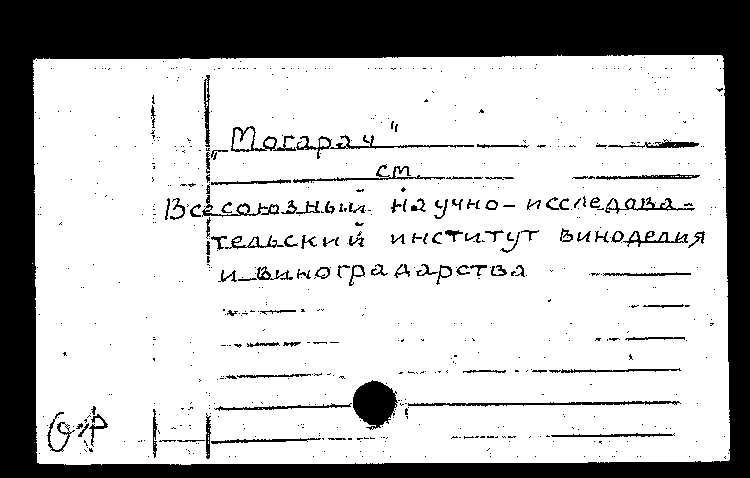 „Могарач"
см.
Всесоюзный научно-исследова-
тельский институт виноделия
и виноградарства